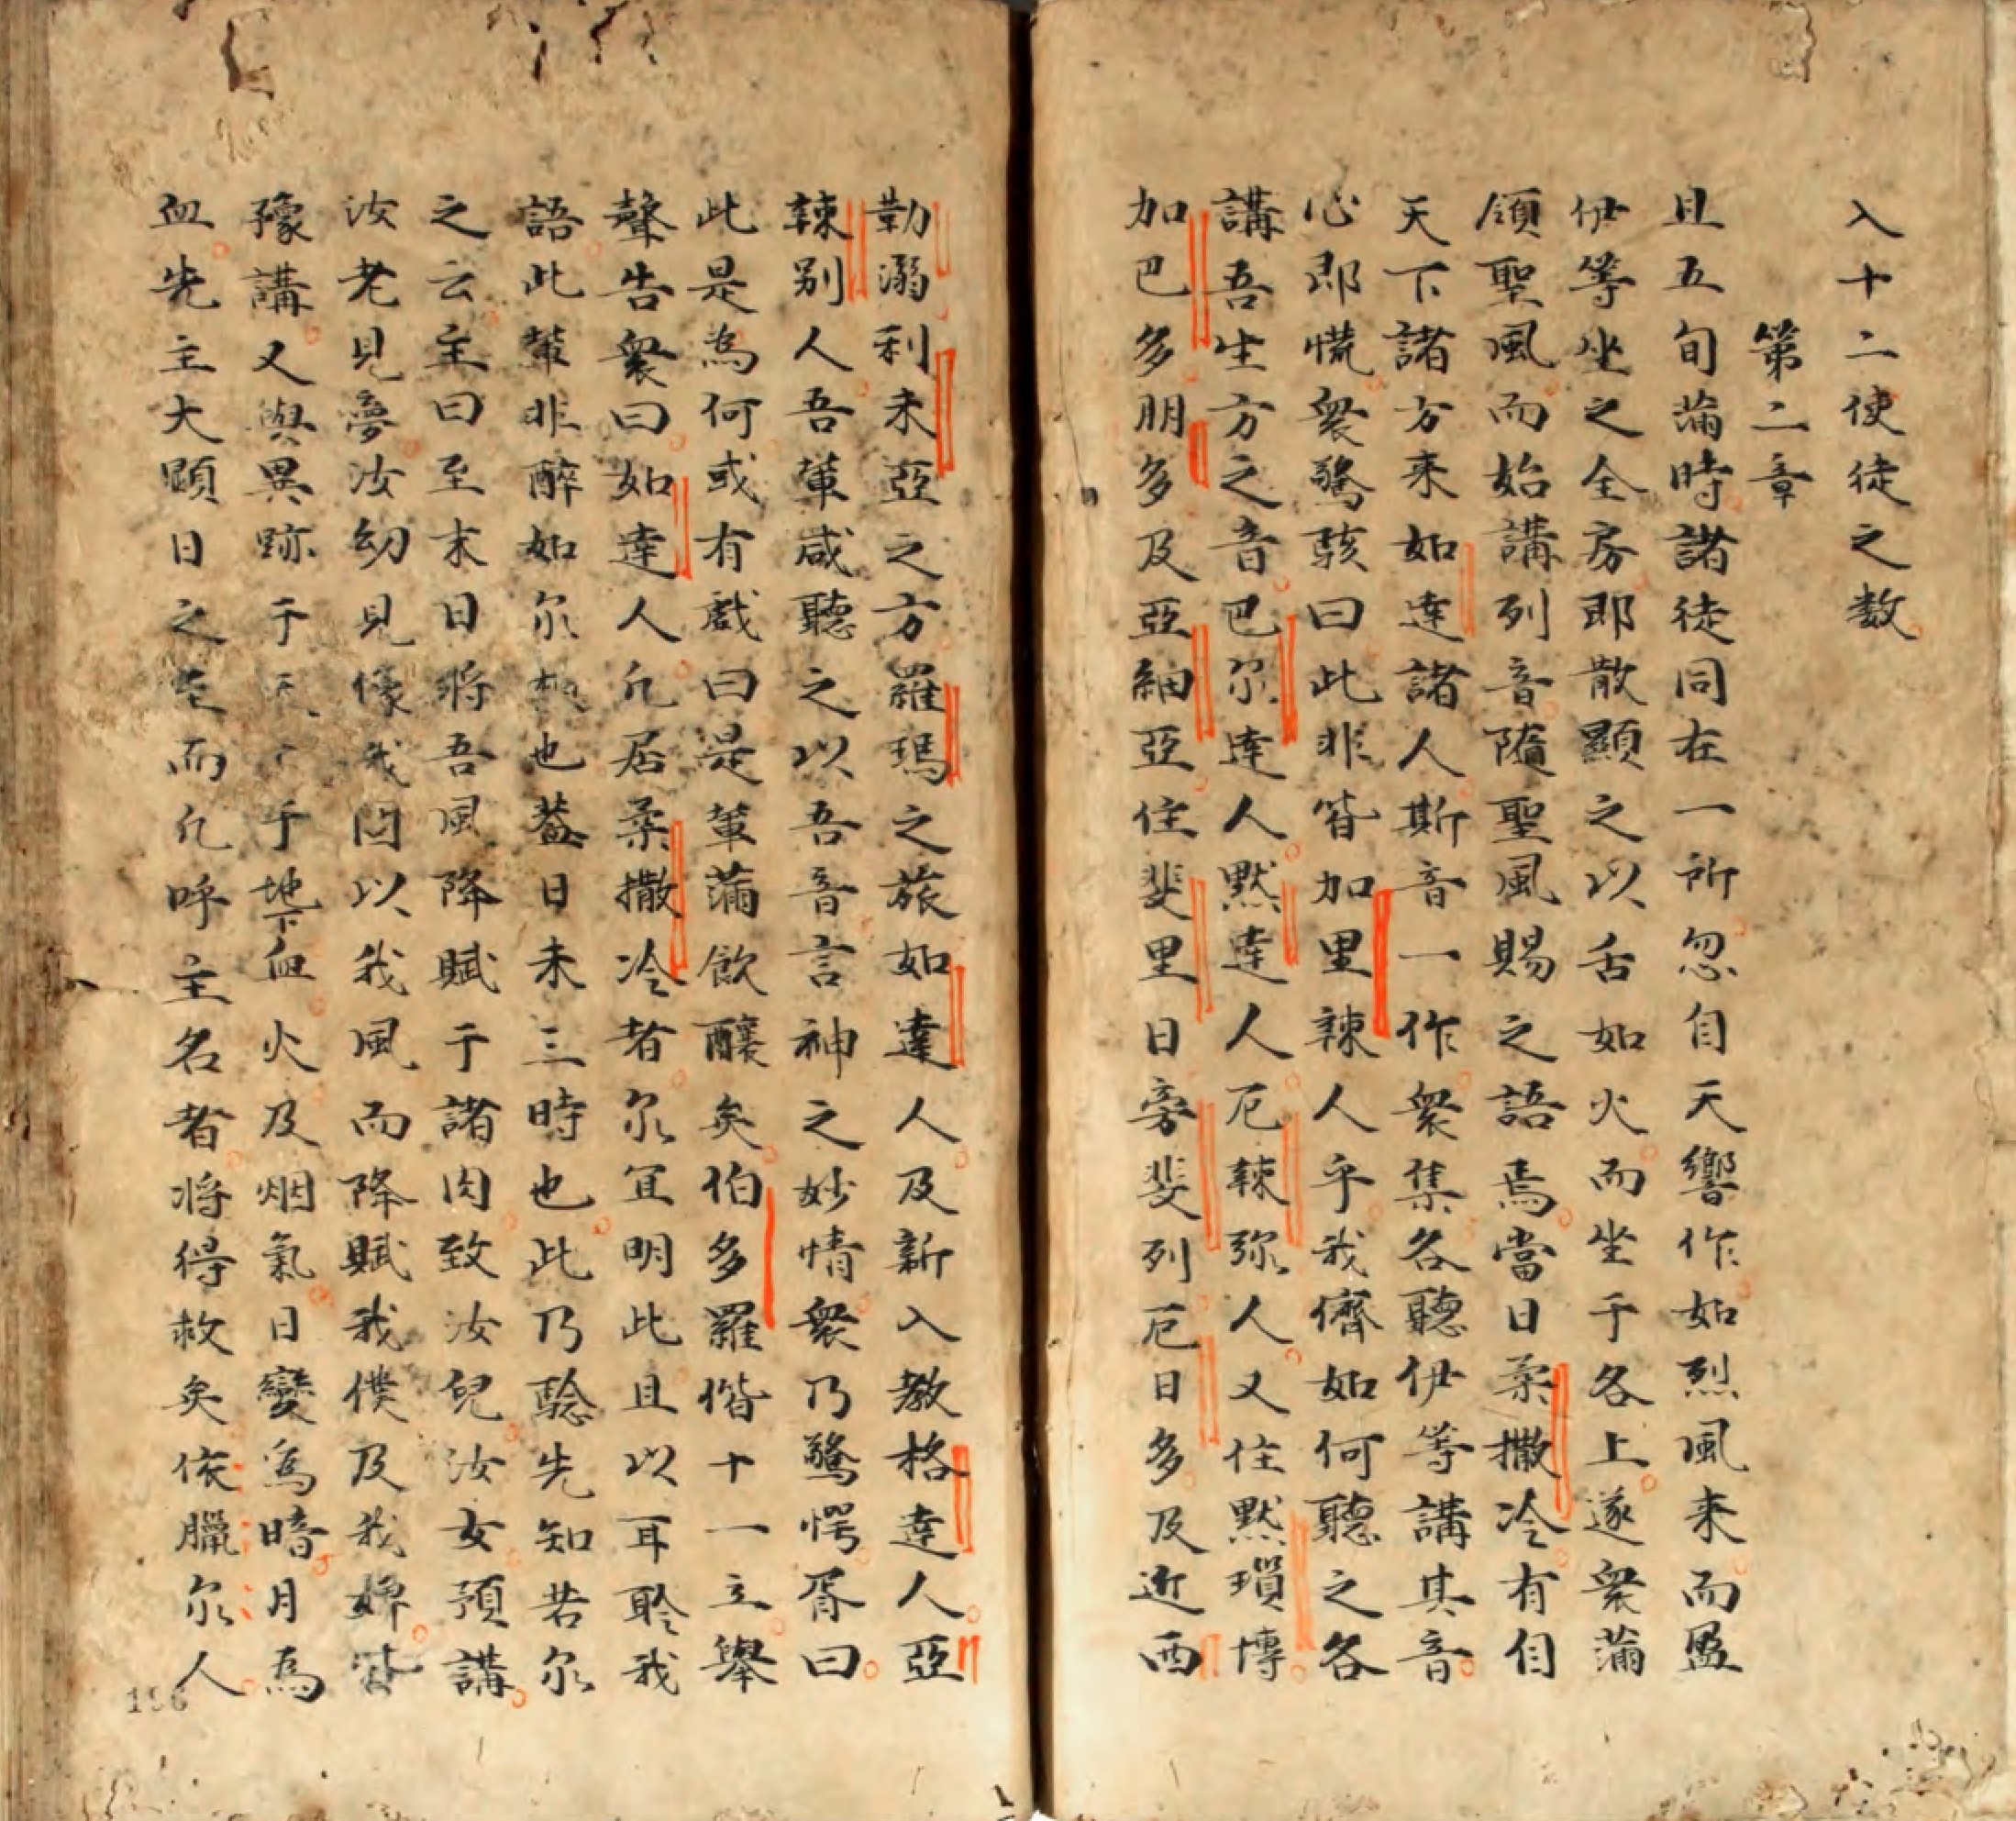 入十二使徒之数
第二章
且五旬蒲時諸徒同在一所忽自天響作如烈風来而盈
伊等坐之全房即散顯之以舌如火而坐于各上遂衆蒲
領聖風而始講列音隨聖風賜之語焉當日柔撒冷有自
天下諸方来如達諸人斯音一作衆集各聽伊等講其音
心即慌衆驚駭曰此非皆加里辣人乎我儕如何聽之各
講吾生方之音巴尔達人默達人厄辣弥人又住默瑣博
加巴多朋多及亞細亞住斐里日旁斐列厄日多及近西
勒溺利未亞之方羅瑪之旅如達人及新入教格達人亞
辣别人吾軰咸聽之以吾音言神之妙情衆乃驚愕胥曰
此是為何或有戲曰是軰蒲飲釀矣伯多羅偕十一立舉
聲告衆曰如達人凢居柔撒冷者尔冝明此且以耳聆我
語此軰非醉如尔也葢日未三時也此乃騐先知若尔
之云主曰至末日將吾風降賦于諸肉致汝兒汝女預講
汝老見夢汝幼見像我因以我風而降賦我僕及我婢皆
豫講又與異跡于天于地下血火及烟氣日變為暗月為
血先主大顕日之至而凢呼主名者将得救矣依臘尔人
196